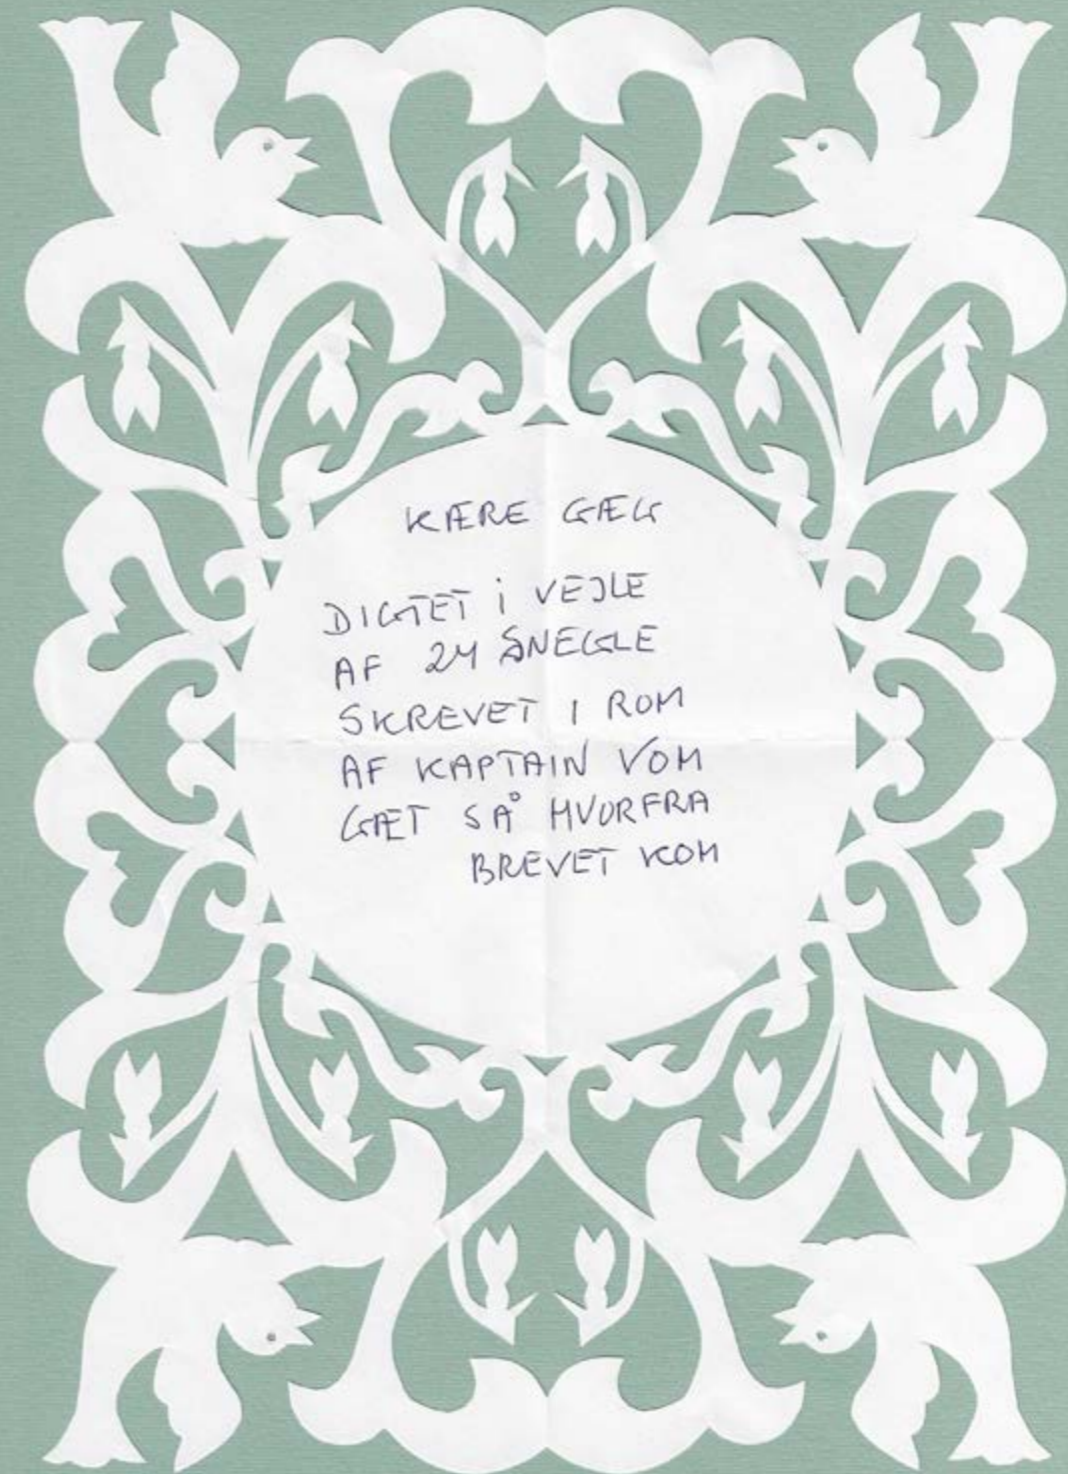 KÆRE GÆK
DIGTET i VEJLE
AF 24 SNEGLE
SKREVET I ROM
AF KAPTAIN VOM
GÆT SÅ HVORFRA
BREVET KOM